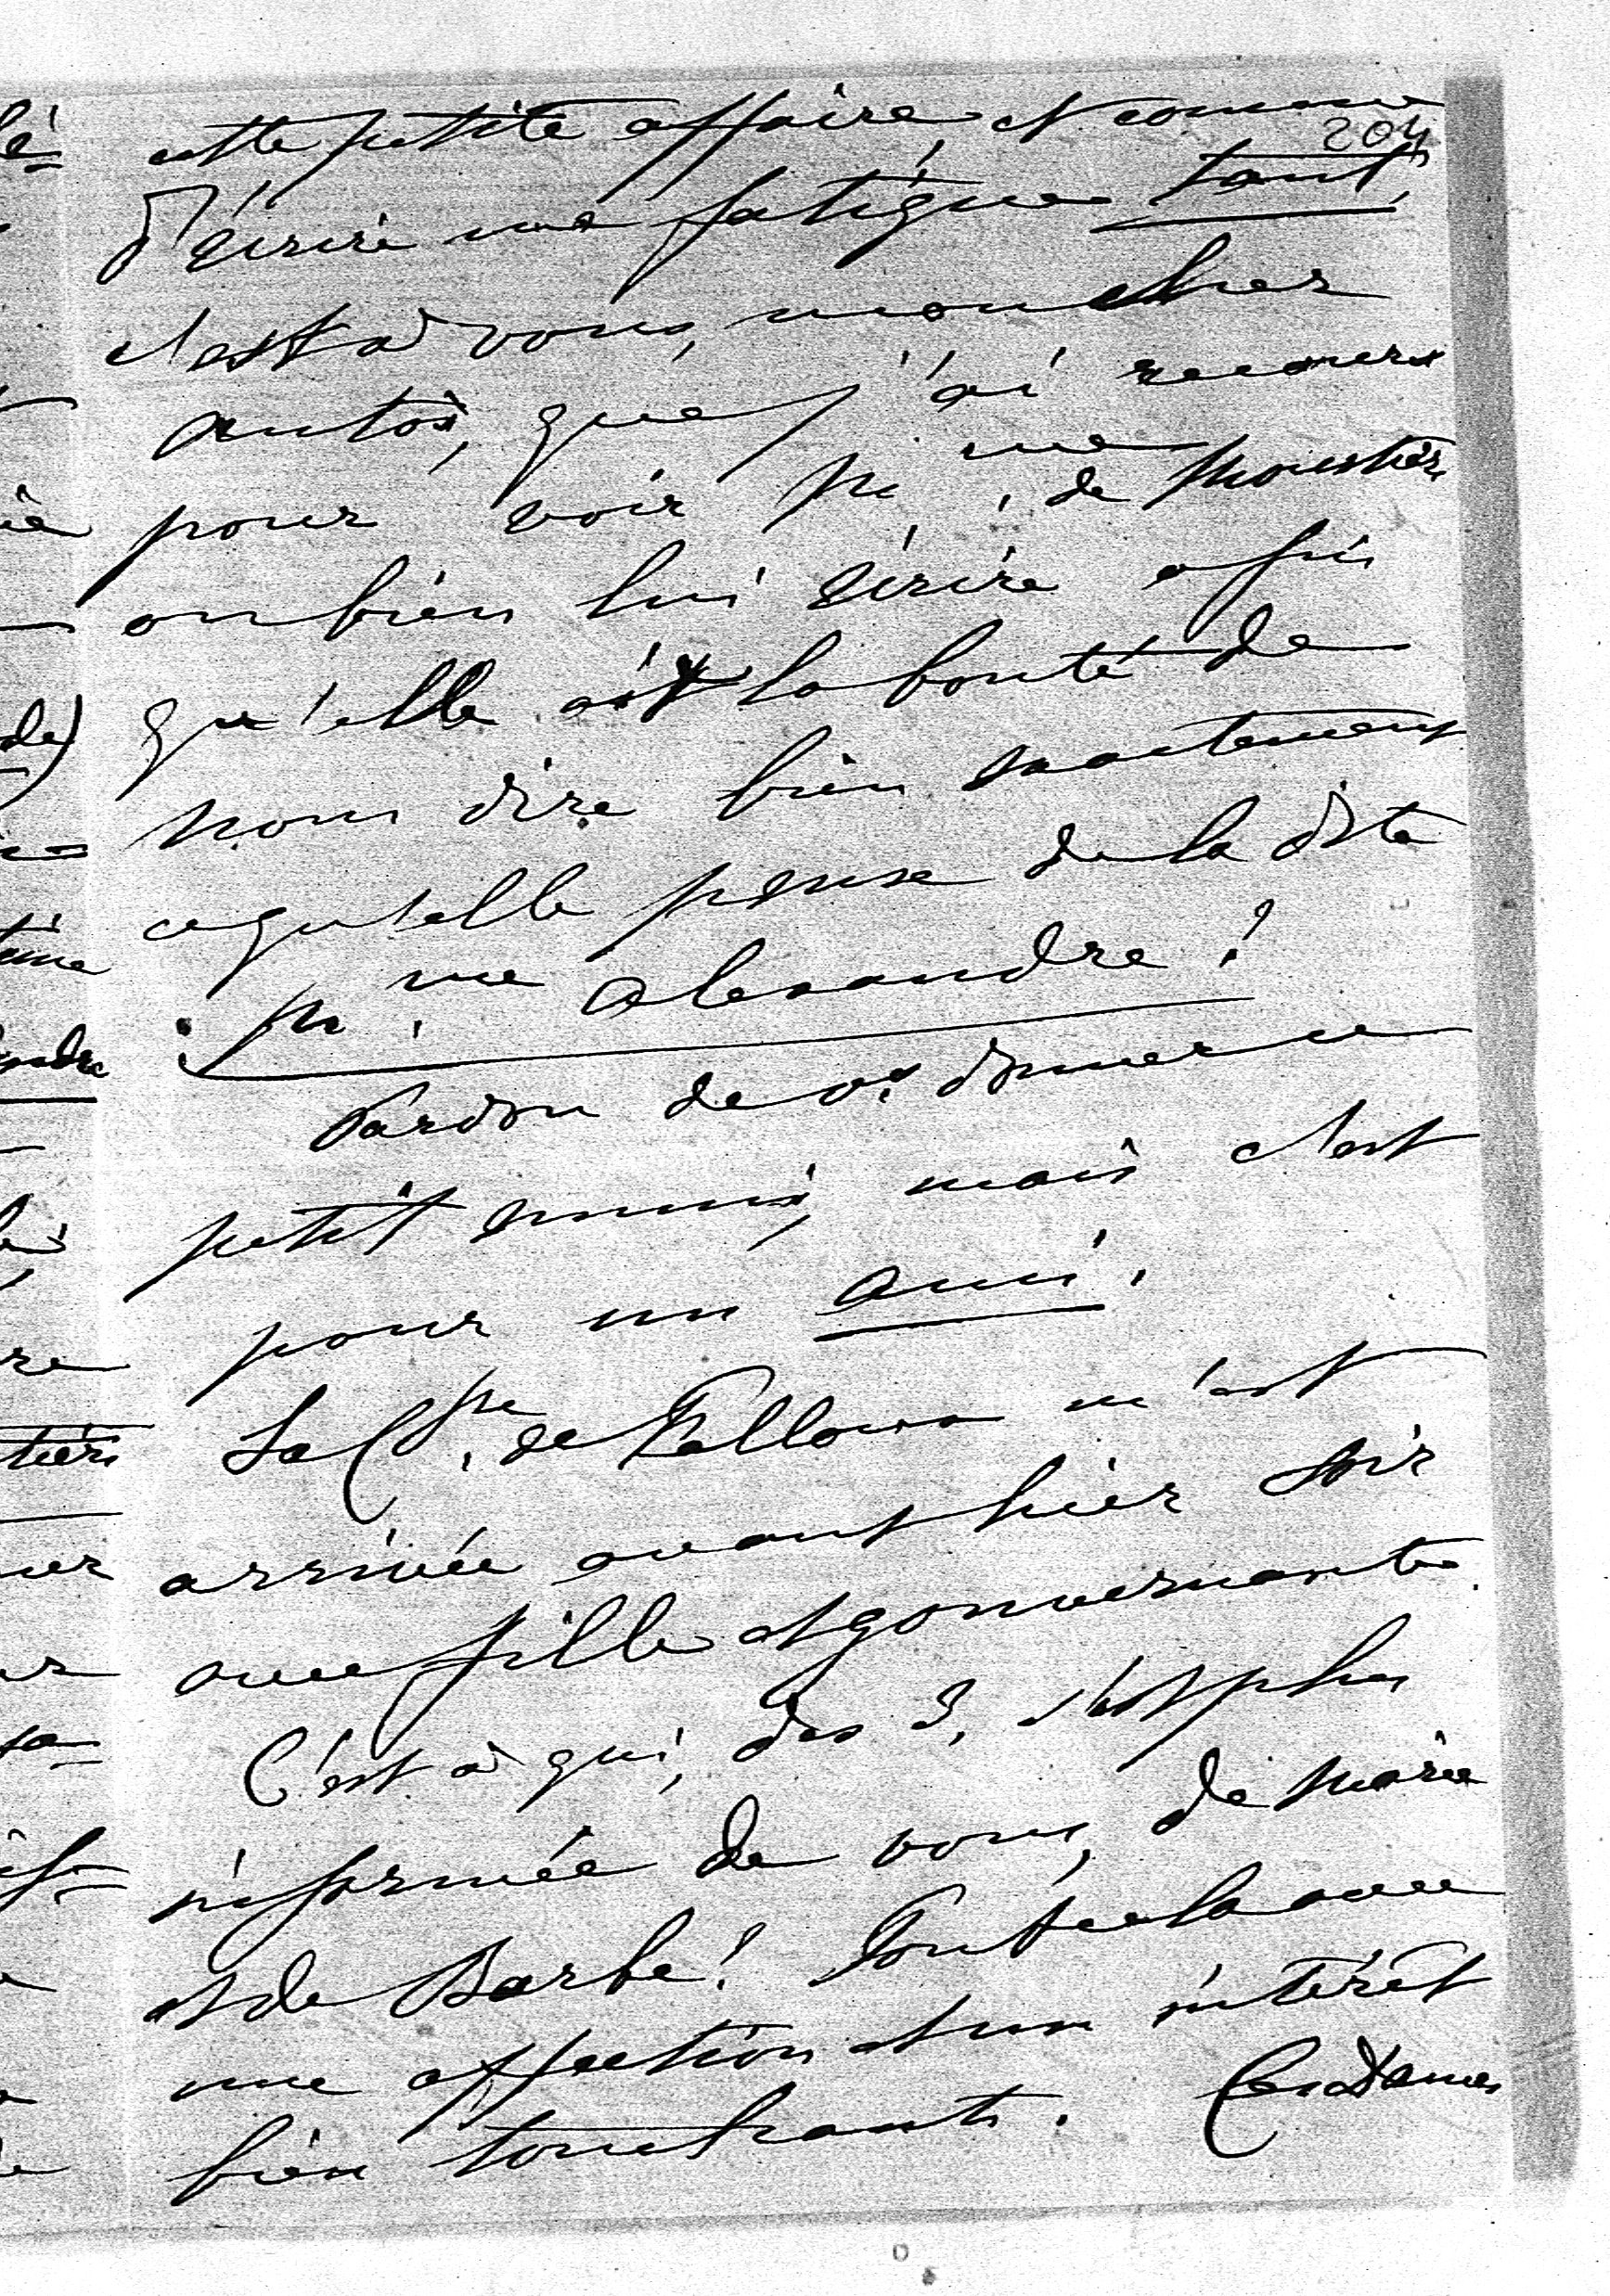 204
cette petite affaire, et comme
d'écrire me fatigue tant,
c'est à vous, mon cher
que j'ai recours
pour voir Me. de Moustier
ou bien lui écrire afin
qu'elle ait la bonté de
nous dire bien exactement
ce qu'elle pense de la dite
Me. Alexandre!
Pardon de vs. donner ce
petit ennui, mais c'est
pour un ami.
La Csse. de m'est
arrivée avant hier soir
avec fille et gouvernante.
C'est à qui, des 3, s'est plus
informée de vous, de Marie
et de Barbe! Tout cela avec
une affection et un intérêt
bien touchants. Ces Dames